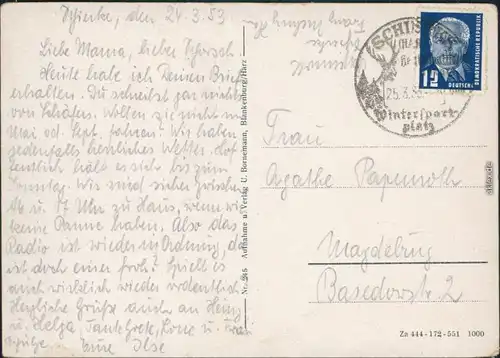 Schierke, den 24.3.53
Liebe Mama, lieber Schorsch
Heute habe ich Deinen Brief
erhalten. Du schreibst gar nichts
von Schäfers. Wollen sie nicht im
Mai od. Sept. fahren? Wir haben
jedenfalls herrliches Wetter. Hof
fentlich hält es sich bis zum
Sonntag. Wir sind sicher zwischen
16 u. 17 Uhr zu Haus, wenn wir
keine Panne haben. Also das
Radio ist wieder in Ordnung, da
ist doch einer froh? Spielt es
auch wirklich wieder ordentlich
Herzliche Grüße auch an Heinz
u. Helga, Tante Grete, u.
Eure Ilse
Nr. 245 Aufnahme u. Verlag U. Bornemann, Blankenburg/Harz
SCHI
25.3.
Wintersport-
platz
12
DEUTSCHE
DEMOKRATISCHE REPUBLIK
Frau
Agathe Papenroth
Magdeburg
Basedowstr. 2
Za 444-172-551 1000